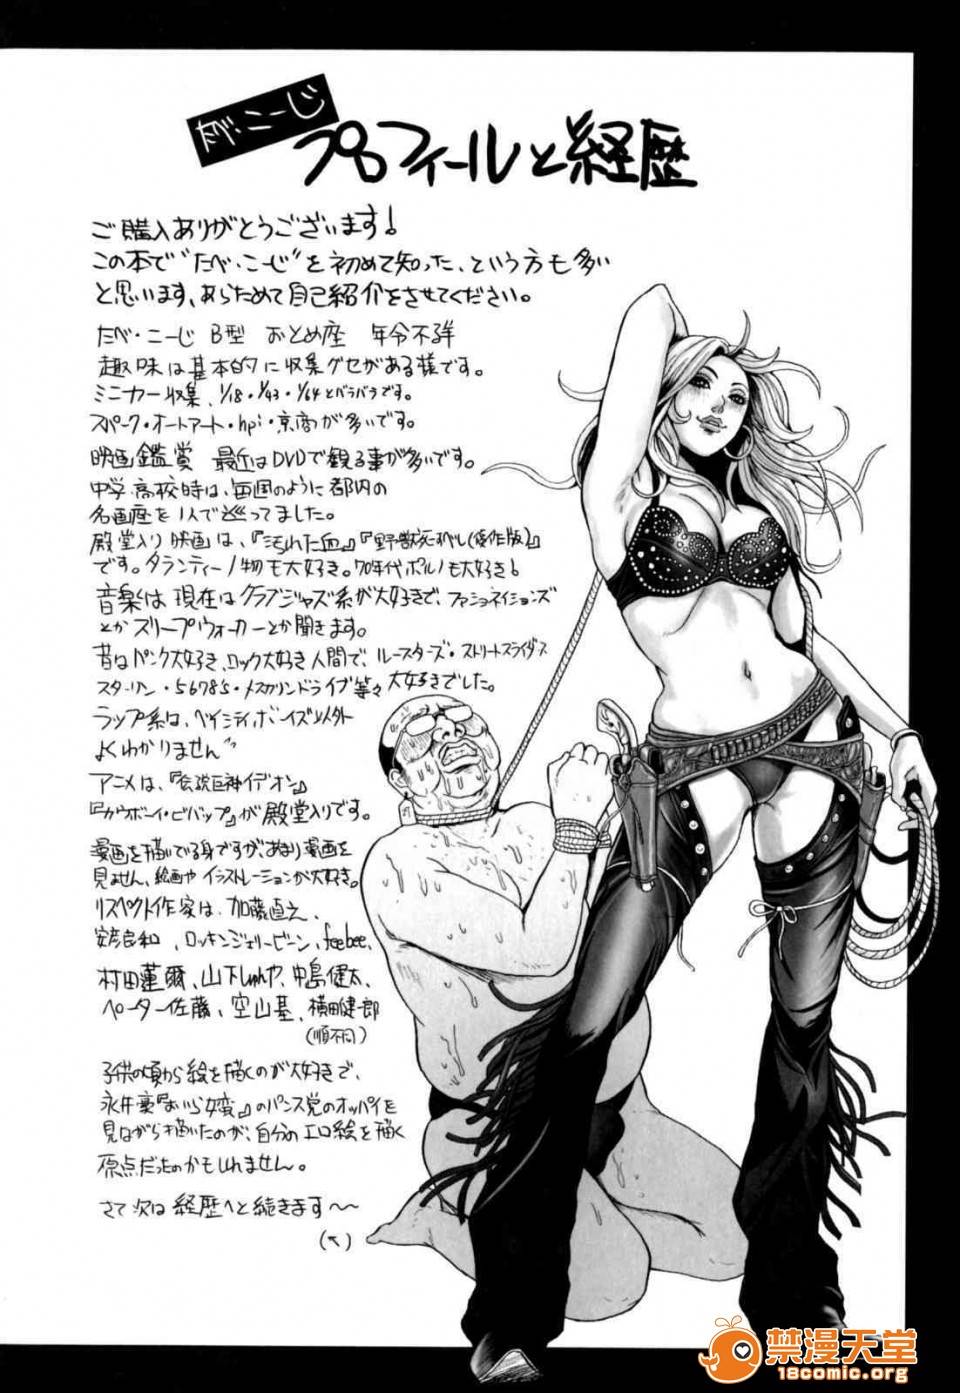 たべ・こーじ
プロフィールと経歴
ご購入ありがとうございます!
この本で"たべ・こーじ"を初めて知った、という方も多い
と思います、あらためて自己紹介をさせてください。
たべ・こーじ B型 おとめ座 年令不詳
趣味は基本的に収集グセがある様です。
ミニカー収集、1/18・1/43・1/64とバラバラです。
スパーク・オートアート・hpi・京商が多いです。
映画鑑賞 最近はDVDで観る事が多いです。
中学、高校時は、毎週のように都内の
名画座を1人で巡ってました。
殿堂入り映画は、『汚れた血』『野獣死すべし(優作版)』
です。タランティーノ物も大好き。70年代ポルノも大好き!
音楽は現在はクラブジャズ系が大好きで、ファショネイションズ
とかスリープウォーカーとか聞きます。
昔はパンク大好き、ロック大好き人間で、ルースターズ・ストリートスライダース
スターリン・56785・メスカリンドライブ等々大好きでした。
ラップ系は、ベイシティボーイズ以外
よくわかりません
アニメは、『伝説巨神イデオン』
『カウボーイ・ビバップ』が殿堂入りです。
漫画を描いている身ですが、あまり漫画を
見ません、絵画やイラストレーションが大好き。
リスペクト作家は、加藤直之、
安彦良和、ロッキンジェリービーン、feebee、
村田蓮爾、山下しゅんや、中島健太、
ペーター佐藤、空山基、横田健一郎
(順不同)
子供の頃から絵を描くのが大好きで、
永井豪『おいら女蛮』のパンス党のオッパイを
見ながら描いたのが、自分のエロ絵を描く
原点だったのかもしれません。
さて次は経歴へと続きます〜〜
(↖)
禁漫天堂
18comic.org